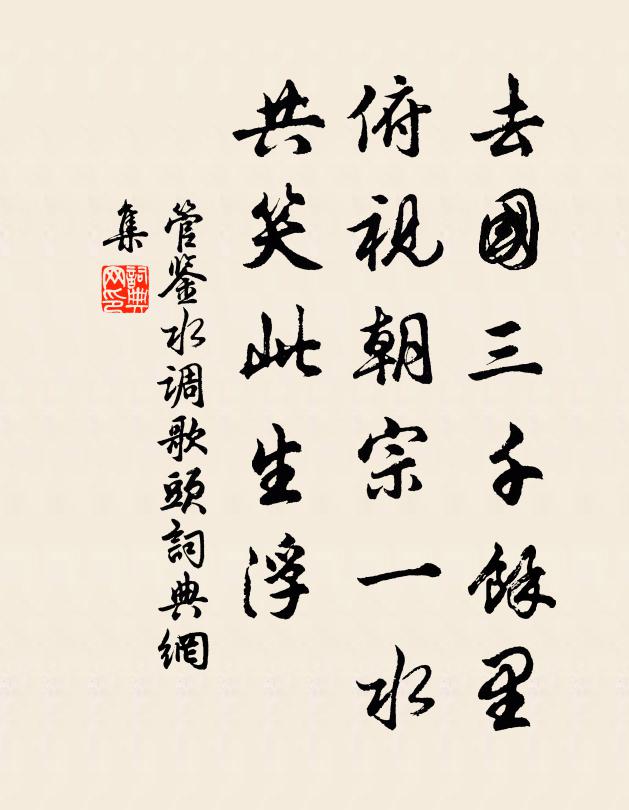 去國三千餘里
俯視朝宗一水
共笑此生浮
管鉴水调歌頭詞典網
集
詞典网印